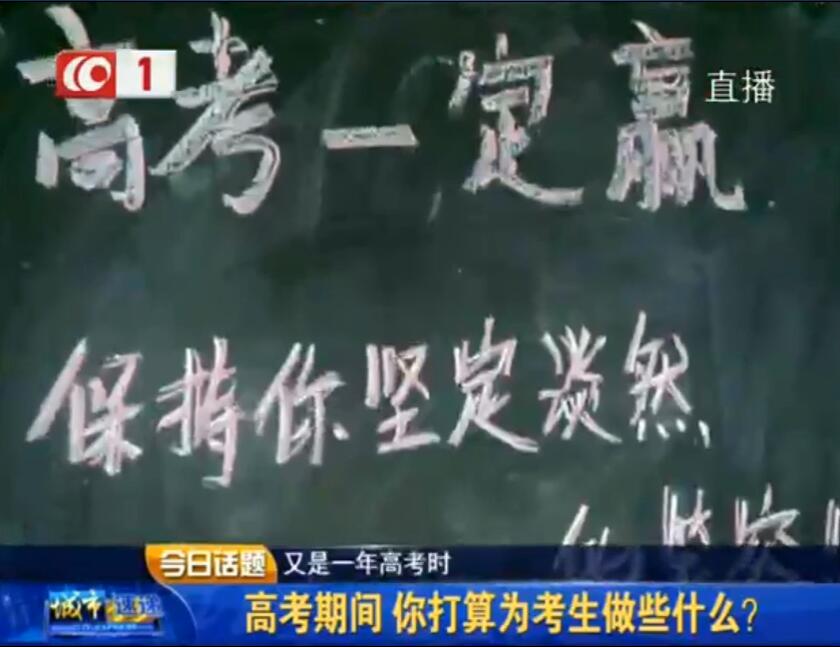 1
直播
高考一定赢
保持你坚定淡然
今日话题
又是一年高考时
城市速递
高考期间 你打算为考生做些什么?